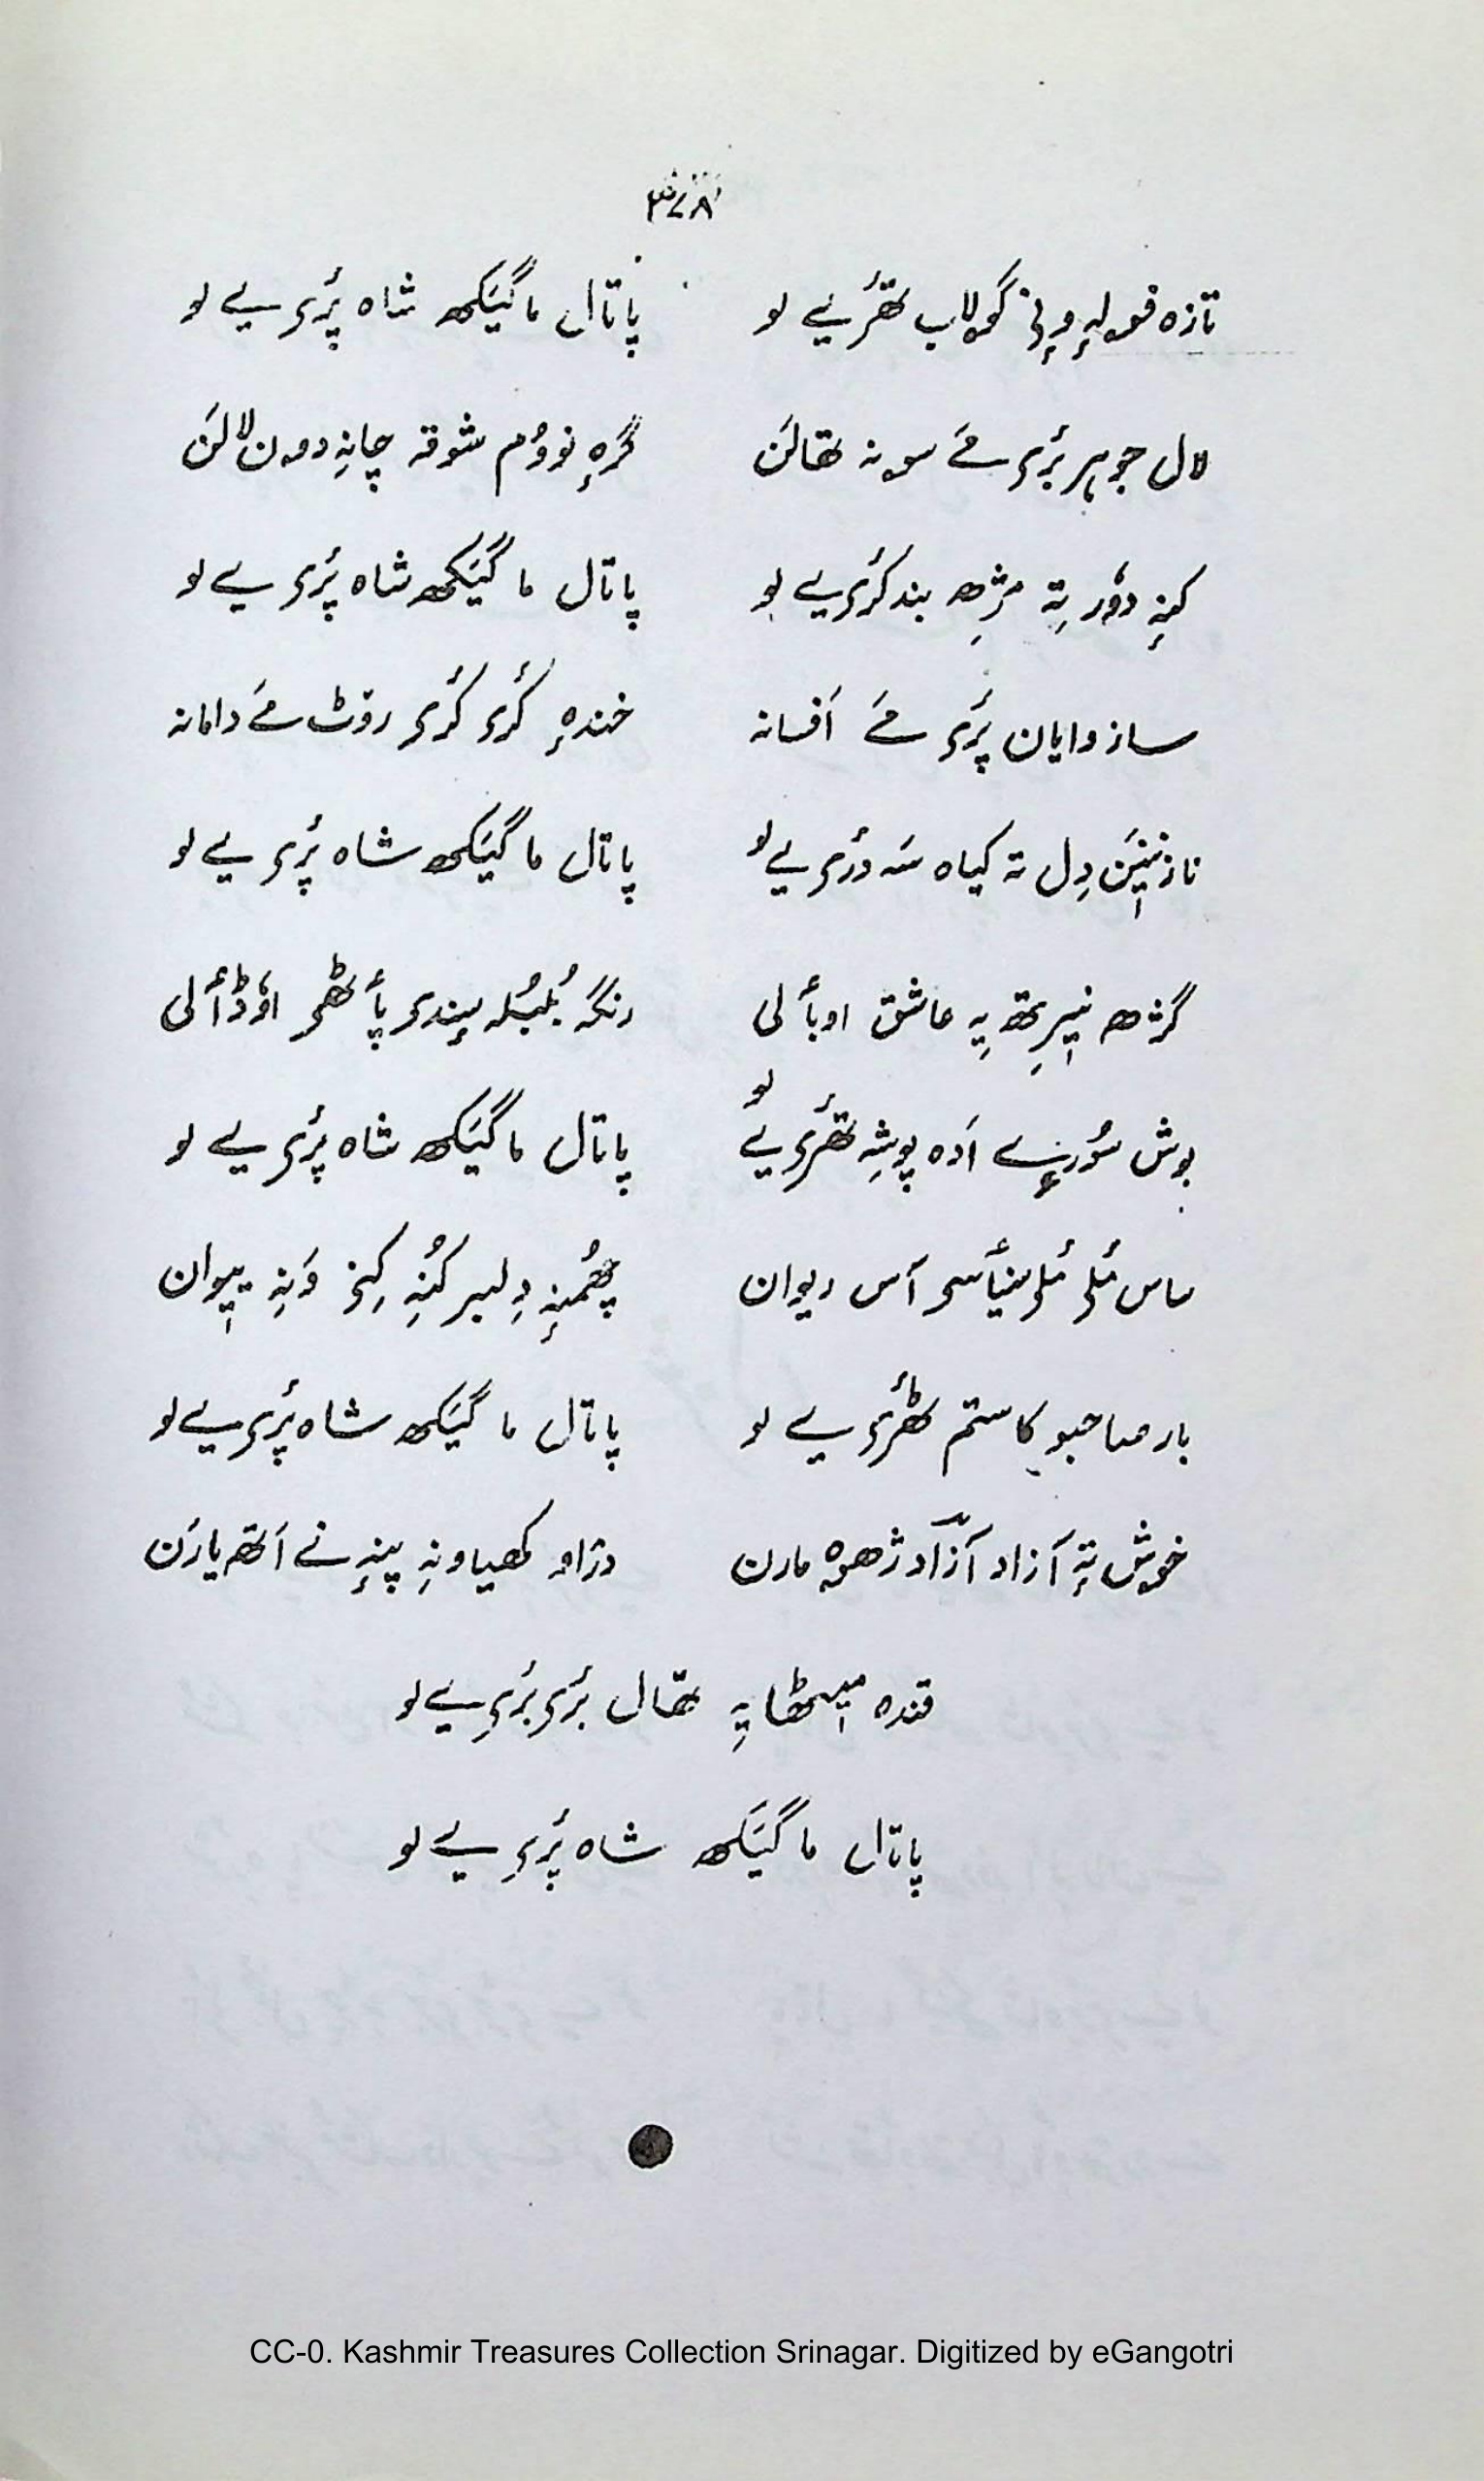 ۳۷۸
تازہ فولہٕ وٕنۍ گولاب تھٔریے لو پاتال ما گیَکھ شاہ پٔرۍ یے لو
لال جوہر بٔرۍ مےٚ سونہ تھالَن گرٕہ نووُم شوقہ چانہِ دون لالَن
کنہِ دوٗر تہٕ مژٕھ بند کٔرۍ یے لو پاتال ما گیَکھ شاہ پٔرۍ یے لو
ساز وایان پٔرۍ مےٚ اَفسانہ خندہٕ کٔرۍ کٔرۍ روٹ مےٚ دامانہ
نازنیٖنَن دِل تہ کیاہ سَہ دٔرۍ یے لو پاتال ما گیَکھ شاہ پٔرۍ یے لو
گژھ نیٖرِتھ یہِ عاشق اوبألی رنگہ بُلبُلہ ہِندۍ پأٹھۍ اوٗڈألی
بوش سُورِیے اَدہ پوشہِ تھٔرۍ یے لو پاتال ما گیَکھ شاہ پٔرۍ یے لو
ماس مٔلۍ مٔلۍ سنیأسۍ آس ریوان چھُمنہٕ دِلبر کُنہِ کِنۍ وَنہِ پیٖوان
بار صاحبو کاستم ٹھٔرۍ یے لو پاتال ما گیَکھ شاہ پٔرۍ یے لو
خوش تہٕ آزاد آزاد ژھوہ مارن دژاو کھیاونہِ پنہٕ نے اَتھ یارَن
قندہ میٖٹھا یہِ تھال بٔرۍ بٔرۍ یے لو
پاتال ما گیَکھ شاہ پٔرۍ یے لو
CC-0. Kashmir Treasures Collection Srinagar. Digitized by eGangotri